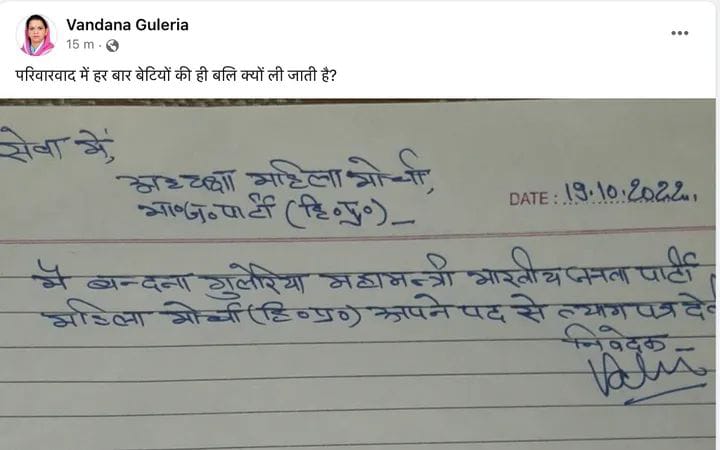 Vandana Guleria
15 m ·
परिवारवाद में हर बार बेटियों की ही बलि क्यों ली जाती है?
सेवा में,
अध्यक्षा महिला मोर्चा,
भा०ज०पार्टी (हि०प्र०)
DATE : 19.10.2022
मैं बन्दना गुलेरिया महामन्त्री भारतीय जनता पार्टी
महिला मोर्चा (हि०प्र०) अपने पद से त्यागपत्र
निवेदक